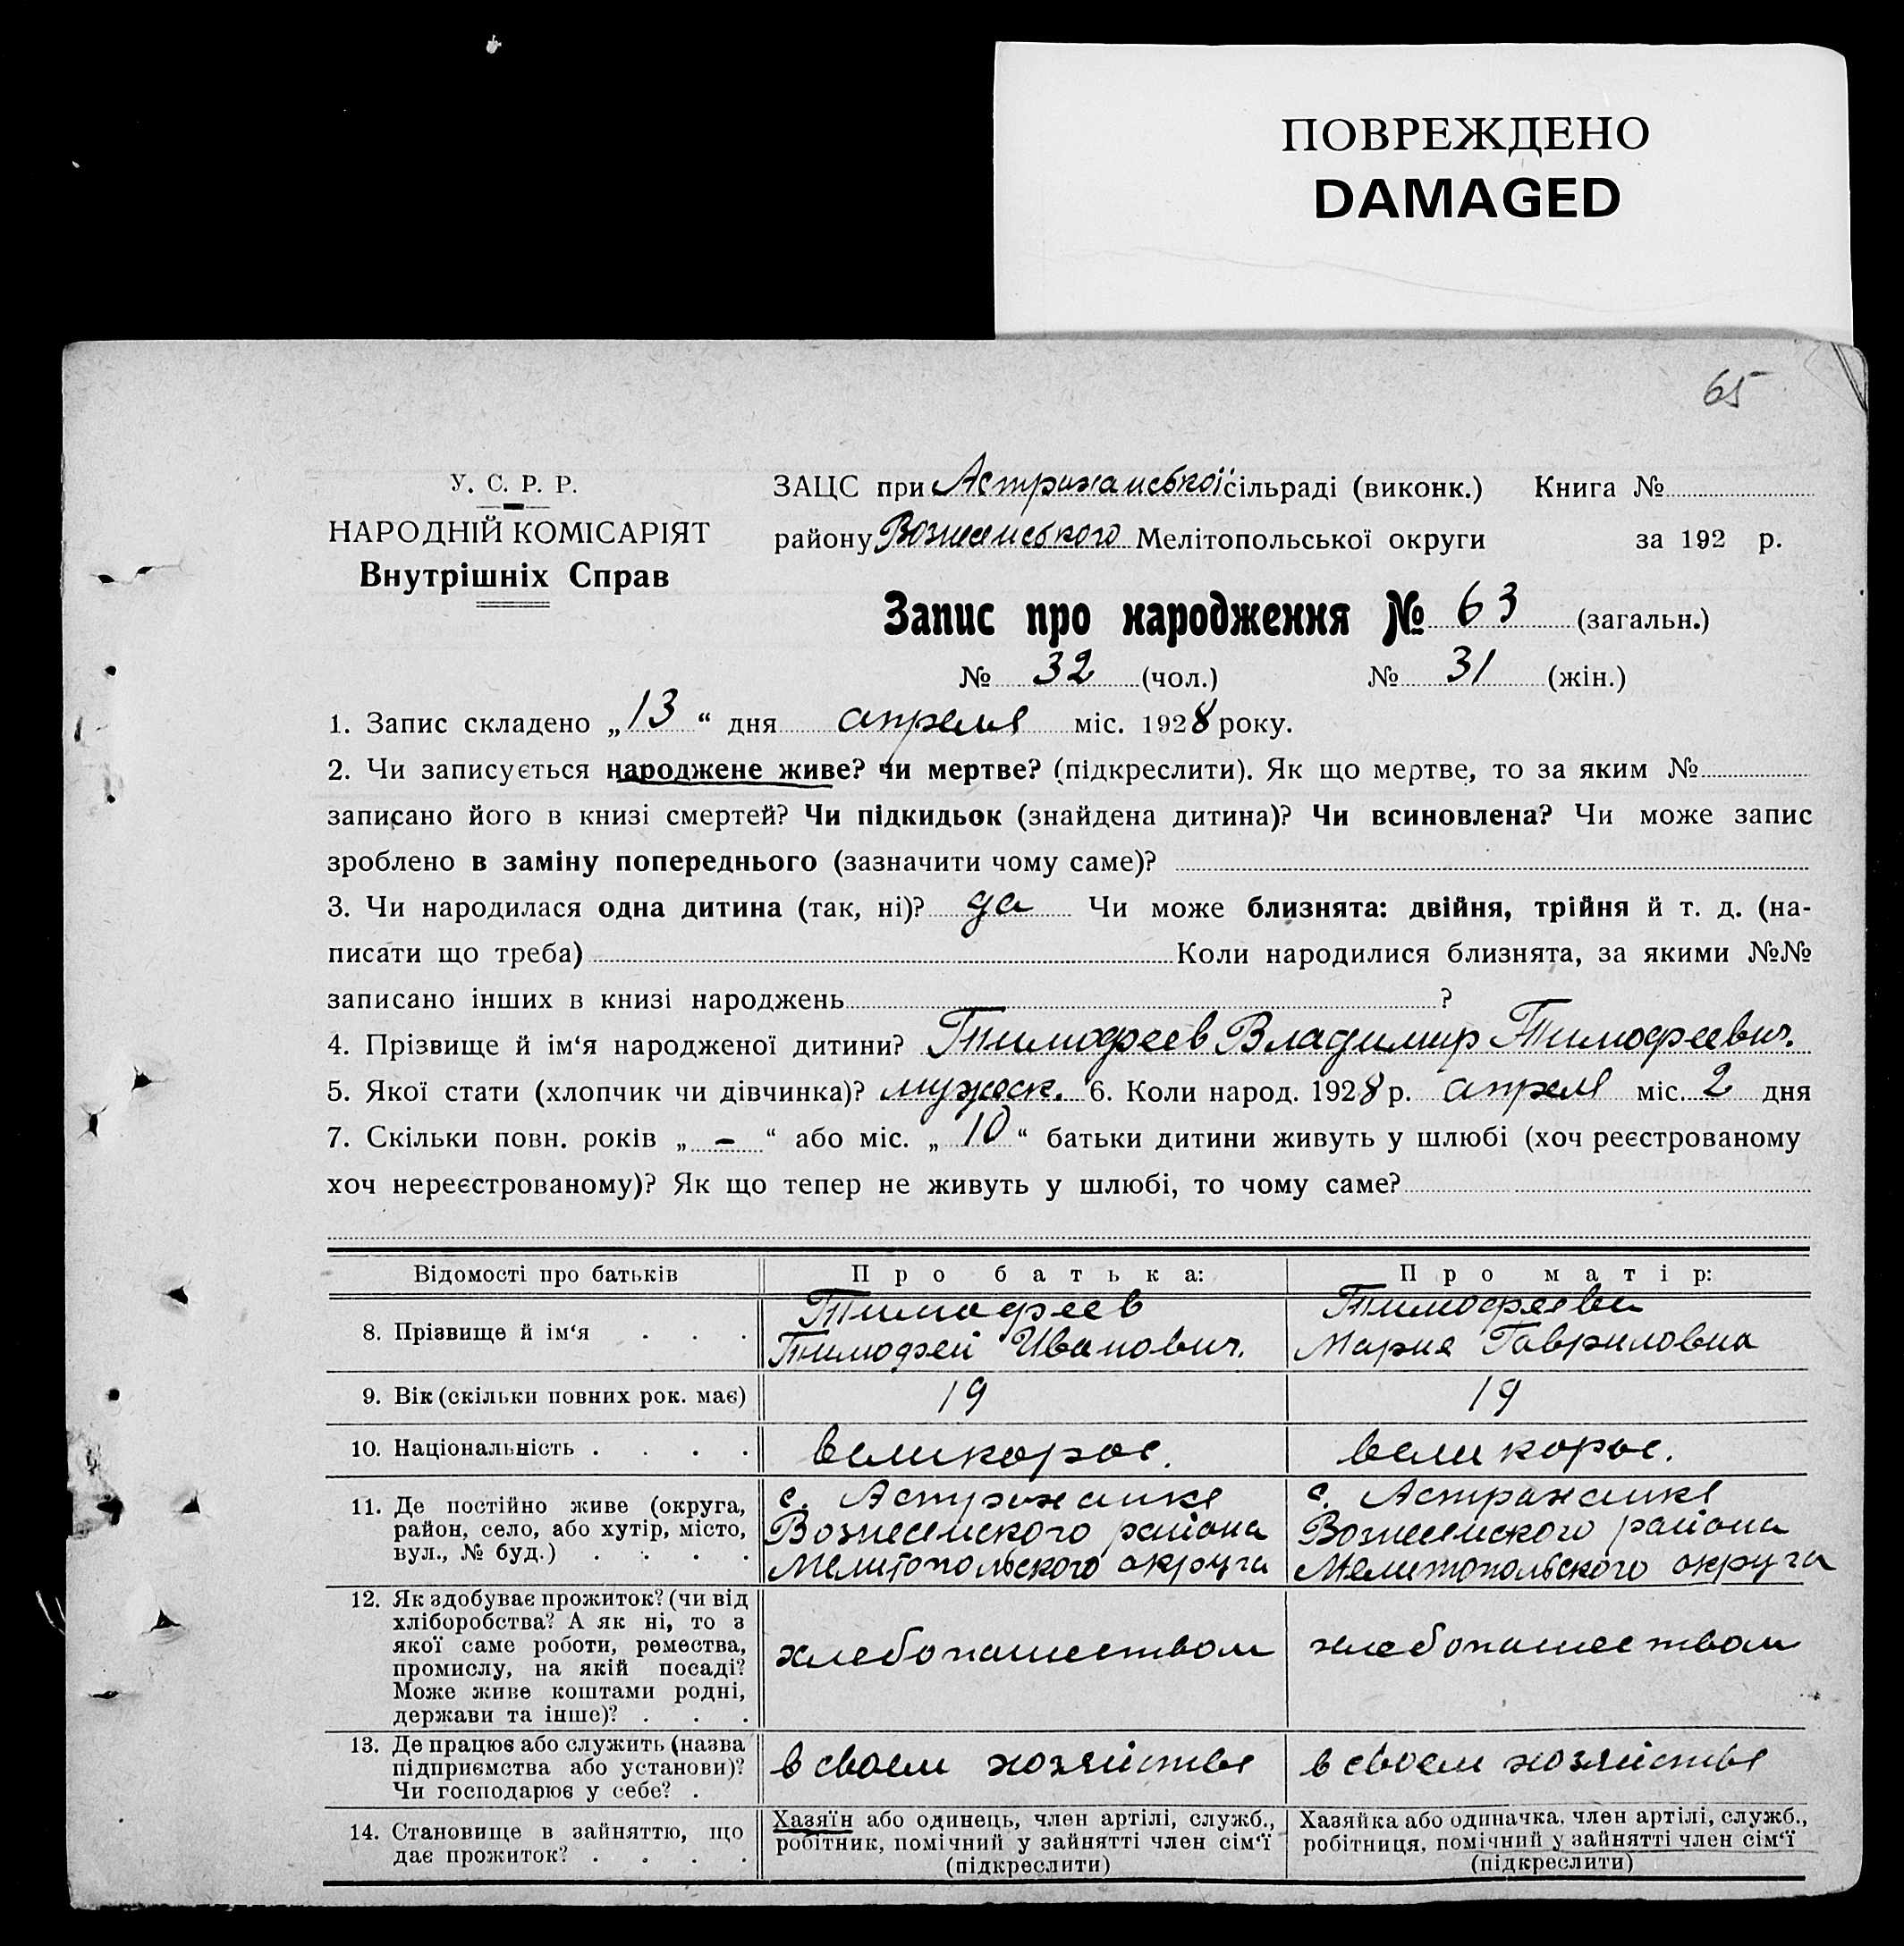 ПОВРЕЖДЕНО
DAMAGED
65
У. С. Р. Р.
НАРОДНІЙ КОМІСАРІЯТ
Внутрішніх Справ
ЗАЦС при Астраханської сільраді (виконк.) Книга №
району Вознесенського Мелітопольської округи за 192 р.
Запис про народження № 63 (загальн.)
№ 32 (чол.) № 31 (жін.)
1. Запис складено „13“ дня апреля міс. 1928 року.
2. Чи записується народжене живе? чи мертве? (підкреслити). Як що мертве, то за яким №
записано його в книзі смертей? Чи підкидьок (знайдена дитина)? Чи всиновлена? Чи може запис
зроблено в заміну попереднього (зазначити чому саме)?
3. Чи народилася одна дитина (так, ні)? да Чи може близнята: двійня, трійня й т. д. (на-
писати що треба) Коли народилися близнята, за якими №№
записано інших в книзі народжень ?
4. Прізвище й ім‘я народженої дитини? Тимофеев Владимир Тимофеевич.
5. Якої стати (хлопчик чи дівчинка)? мужеск. 6. Коли народ. 1928 р. апреля міс. 2 дня
7. Скільки повн. років „ – “ або міс. „ 10 “ батьки дитини живуть у шлюбі (хоч реєстрованому
хоч нереєстрованому)? Як що тепер не живуть у шлюбі, то чому саме?
Відомості про батьків Про батька: Про матір:
8. Прізвище й ім‘я . . . Тимофеев Тимофеева
Тимофей Иванович. Мария Гавриловна
9. Вік (скільки повних рок. має) 19 19
10. Національність . . . . великорос. великорос.
11. Де постійно живе (округа, с. Астраханке с. Астраханке
район, село, або хутір, місто, Вознесенского района Вознесенского района
вул., № буд.) . . . . Мелитопольского округа Мелитопольского округа
12. Як здобуває прожиток? (чи від
хліборобства? А як ні, то з
якої саме роботи, ремества, хлебопашеством хлебопашеством
промислу, на якій посаді?
Може живе коштами родні,
держави та інше)? . . .
13. Де працює або служить (назва
підприємства або установи)? в своем хозяйстве в своем хозяйстве
Чи господарює у себе? .
14. Становище в зайняттю, що
дає прожиток? . . . .
Хазяїн або одинець, член артілі, служб.,
робітник, помічний у зайнятті член сім‘ї
(підкреслити)
Хазяйка або одиначка, член артілі, служб.,
робітниця, помічний у зайнятті член сім‘ї
(підкреслити)